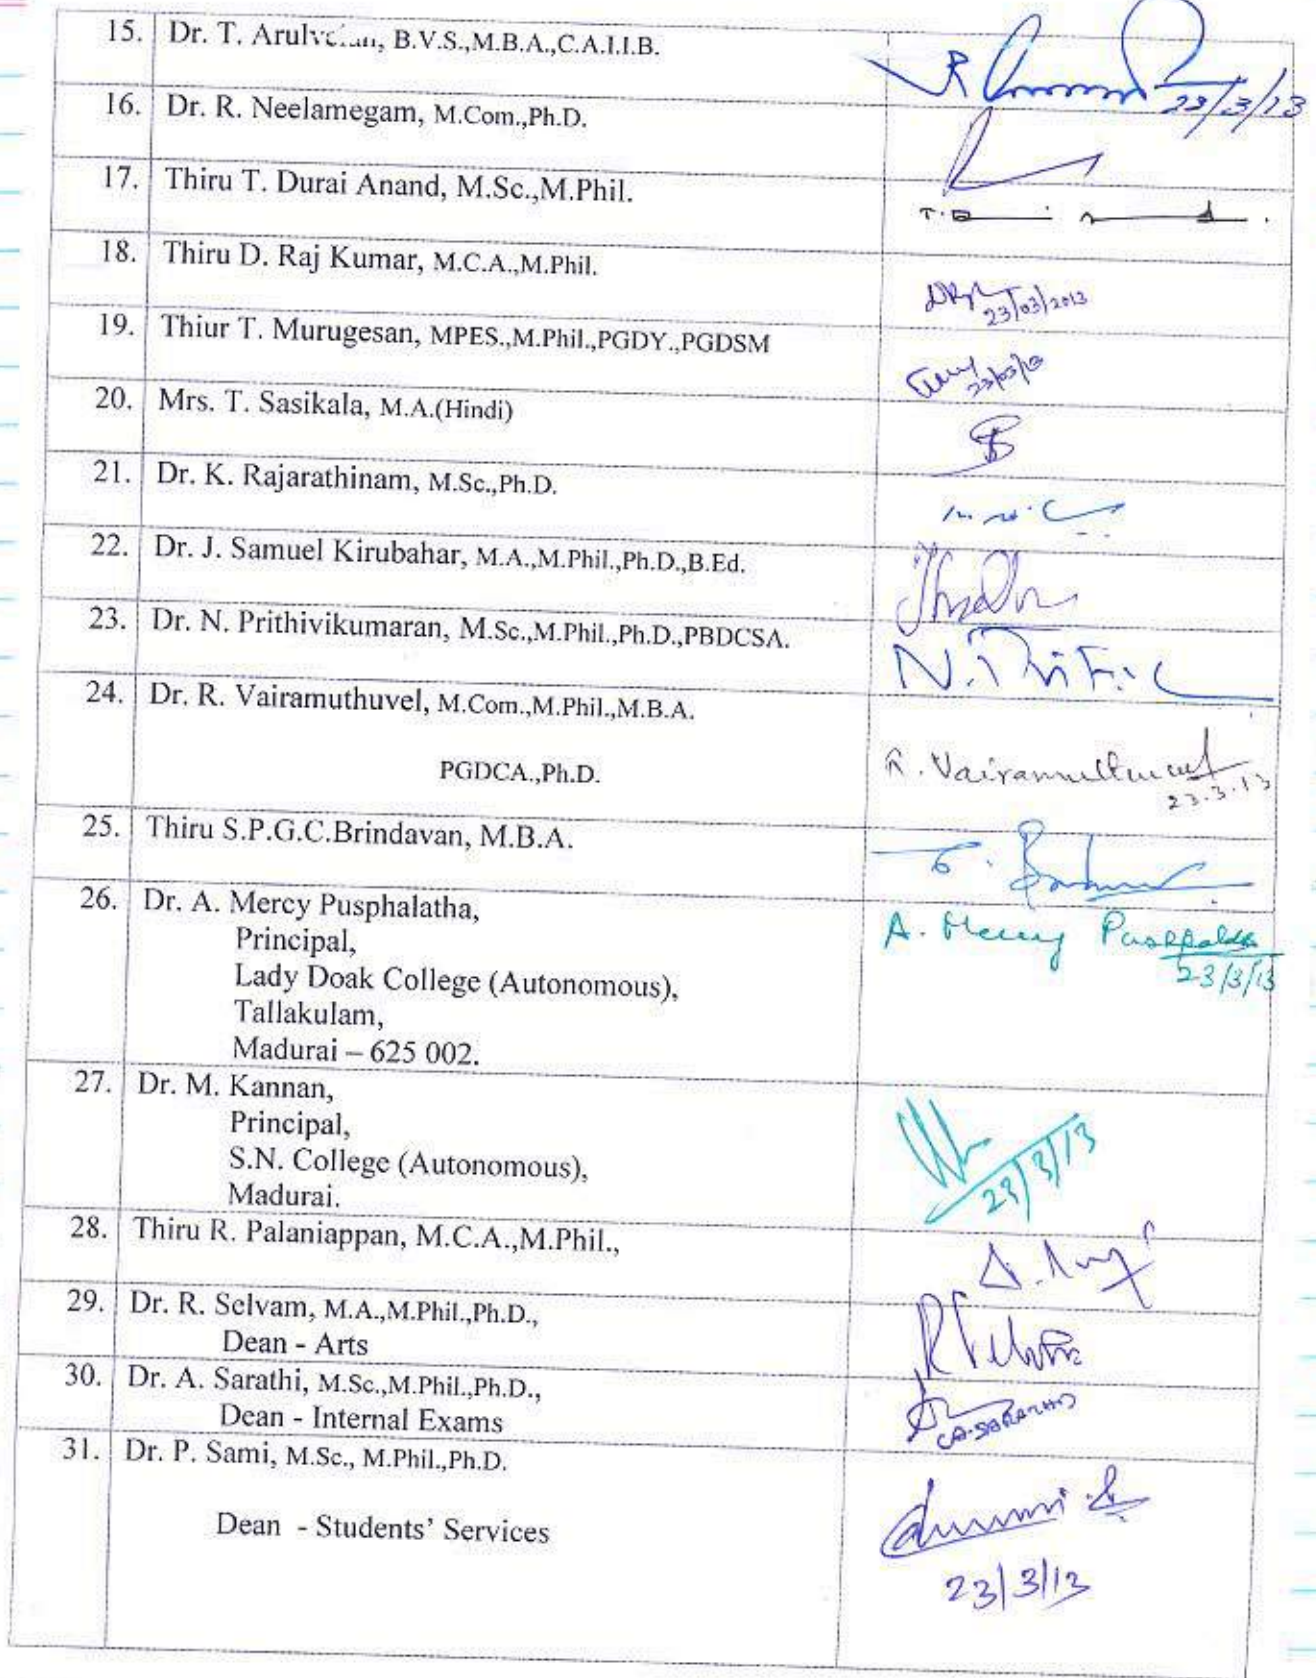 15. Dr. T. Arulvelan, B.V.S.,M.B.A.,C.A.I.I.B.
23/3/13
16. Dr. R. Neelamegam, M.Com.,Ph.D.
17. Thiru T. Durai Anand, M.Sc.,M.Phil.
18. Thiru D. Raj Kumar, M.C.A.,M.Phil.
23/03/2013
19. Thiur T. Murugesan, MPES.,M.Phil.,PGDY.,PGDSM
23/03/13
20. Mrs. T. Sasikala, M.A.(Hindi)
21. Dr. K. Rajarathinam, M.Sc.,Ph.D.
22. Dr. J. Samuel Kirubahar, M.A.,M.Phil.,Ph.D.,B.Ed.
23. Dr. N. Prithivikumaran, M.Sc.,M.Phil.,Ph.D.,PBDCSA.
24. Dr. R. Vairamuthuvel, M.Com.,M.Phil.,M.B.A.
PGDCA.,Ph.D. R. Vairamuthuvel
23.3.13
25. Thiru S.P.G.C.Brindavan, M.B.A.
26. Dr. A. Mercy Pusphalatha, A. Mercy Pushpalatha
Principal, 23/3/13
Lady Doak College (Autonomous),
Tallakulam,
Madurai – 625 002.
27. Dr. M. Kannan,
Principal,
S.N. College (Autonomous), 23/3/13
Madurai.
28. Thiru R. Palaniappan, M.C.A.,M.Phil.,
29. Dr. R. Selvam, M.A.,M.Phil.,Ph.D.,
Dean - Arts
30. Dr. A. Sarathi, M.Sc.,M.Phil.,Ph.D.,
Dean - Internal Exams (A.SARATHI)
31. Dr. P. Sami, M.Sc., M.Phil.,Ph.D.
Dean - Students' Services
23/3/13